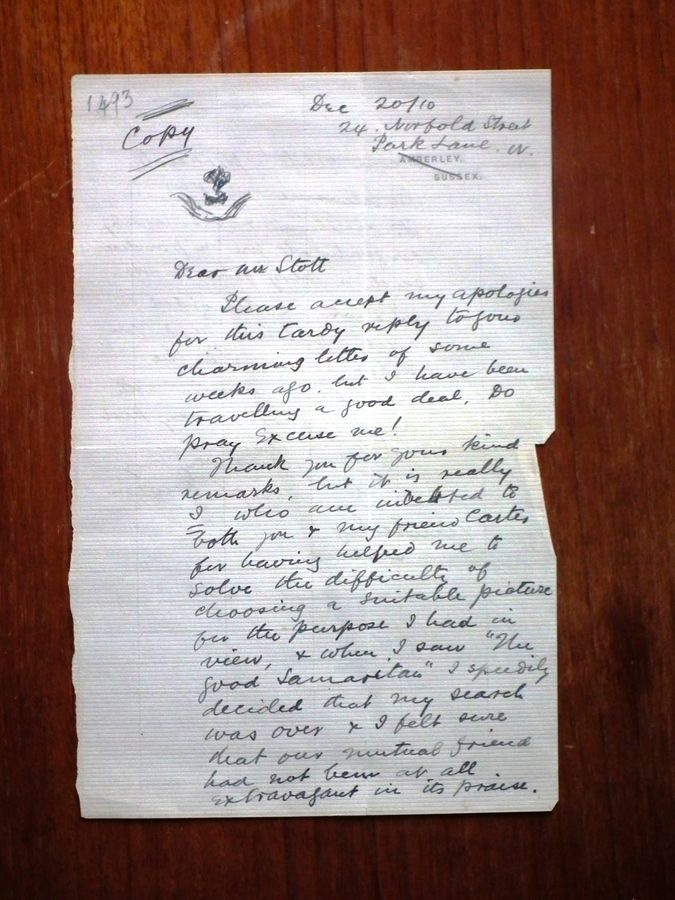 1493
Copy
Dec 20/10
24. Norfold Street
Park Lane. W.
AMBERLEY.
SUSSEX.
Dear Mr Stott
Please accept my apologies
for this tardy reply to your
charming letter of some
weeks ago. but I have been
travelling a good deal. Do
pray Excuse me!
Thank you for your kind
remarks, but it is really
I who am indebted to
both you & my friend Carter
for having helped me to
solve the difficulty of
choosing a suitable picture
for the purpose I had in
view, & when I saw "The
good Samaritan" I speedily
decided that my search
was over & I felt sure
that our mutual friend
had not been at all
extravagant in its praise.